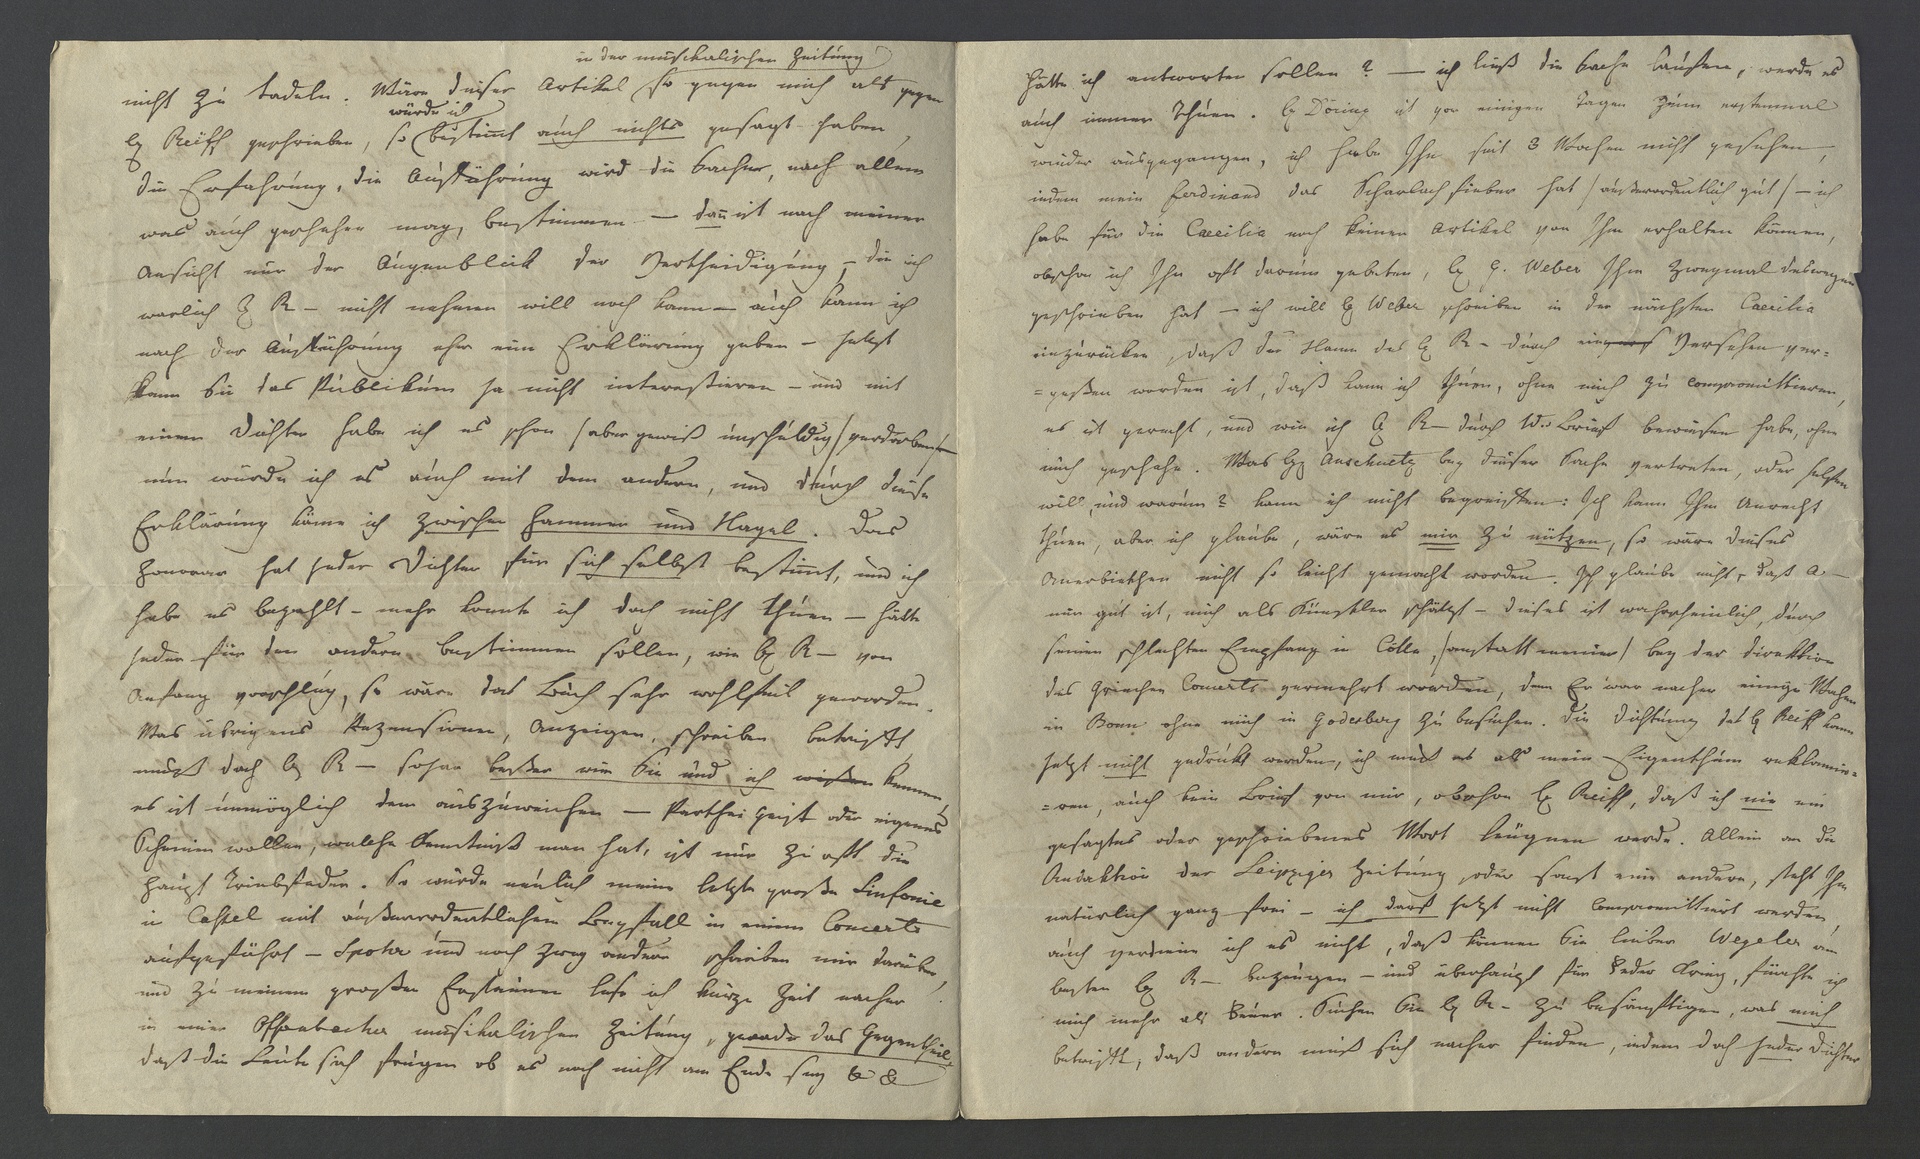 in der musikalischen Zeitung
nicht zu tadeln. Wäre dieser Artikel so gegen mich als gegen
würde ich
H Reiff geschrieben, so bestimt auch nichts gesagt haben,
die Erfahrung, die Ausführung wird die Sache, nach allem
was auch geschehen mag, bestimmen — dan ist nach meiner
Ansicht nur der Augenblick der Vertheidigung, die ich
warlich H R — nicht nehmen will noch kann — auch kann ich
nach der Ausführung eher eine Erklärung geben — jetzt
kann sie das Publikum ja nicht interessieren — und mit
einem Dichter habe ich es schon /aber gewiß unschuldig/ verdorben
nun würde ich es auch mit dem andern, und durch diese
Erklärung käme ich zwischen Hammer und Nagel. Das
Honorar hat jeder Dichter für sich selbst bestimt, und ich
habe es bezahlt — mehr konnte ich doch nicht thuen — hätte
jeder für den andern bestimmen sollen, wie H R — von
Anfang vorschlug, so wäre das Buch sehr wohlfeil geworden.
Was übrigens Rezensionen, Anzeigen, schreiben betrifft,
muß doch H R — besser wie Sie und ich wissen kennen,
es ist unmöglich dem auszuweichen — Parthei Geist oder eigenes
Scheinen wollen, welche Kenntniß man hat, ist nur zu oft die
Haupt Triebfeder. So wurde neulich meine letzte große Sinfonie
in Cassel mit außerordentlichem Beyfall in einem Concerte
aufgeführt — Spohr und noch zwey andere schreiben mir darüber,
und zu meinem großen Erstaunen lese ich kurze Zeit nacher
in einer Offenbacher musikalischen Zeitung, gerade das Gegentheil,
daß die Leute sich frugen ob es noch nicht am Ende sey & &
hätte ich antworten sollen? — ich ließ die Sache laufen, werde es
auch immer thuen. H Döring ist vor einigen Tagen zum erstenmal
wieder ausgegangen, ich habe Ihn seit 3 Wochen nicht gesehen,
indem mein Ferdinand das Scharlachfieber hat /außerordentlich gut/ — ich
habe für die Caecilia noch keinen Artikel von Ihm erhalten können,
obschon ich Ihn oft darum gebeten, H G. Weber Ihm zweymal deswegen
geschrieben hat — ich will H Weber schreiben in der nächsten Caecilia
einzurücken, daß der Name des H R — durch ein Versehen ver=
=gessen worden ist, daß kann ich thuen, ohne mich zu compromittieren,
es ist gerecht, und wie ich H R — durch W. Brief bewiesen habe, ohne
mich geschehe. Was H Anschuetz bey dieser Sache vertreten, oder helfen
will, und warum? kann ich nicht begreiffen: Ich kann Ihm Unrecht
thuen, aber ich glaube, wäre es mir zu nützen, so wäre dieses
Anerbiethen nicht so leicht gemacht worden. Ich glaube nicht, daß A —
mir gut ist, mich als Künstler schätzt — dieses ist wahrscheinlich, durch
seinen schlechten Empfang in Cölln, /anstatt meiner/ bey der Direktion
des Griechen Concerts vermehrt worden, denn Er war nacher einige Wochen
in Bonn ohne mich in Godesberg zu besuchen. Die Dichtung des H Reiff kann
jetzt nicht gedrückt werden, ich muß es als mein Eigenthum reklamie=
=ren, auch kein Brief von mir, obschon H Reiff, daß ich nie ein
gesagtes oder geschriebenes Wort leugnen werde. Allein an die
Redaktion der Leipziger Zeitung, oder sonst eine andere, steht Ihm
natürlich ganz frei — ich darf jetzt nicht compromittiert werden,
auch verdiene ich es nicht, daß können Sie lieber Wegeler am
besten H R — bezeugen — und überhaupt für Feder Krieg, fürchte ich
mich mehr als Feuer. Suchen Sie H R — zu besänftigen, was mich
betrifft, daß andere muß sich nacher finden, indem doch jeder Dichter